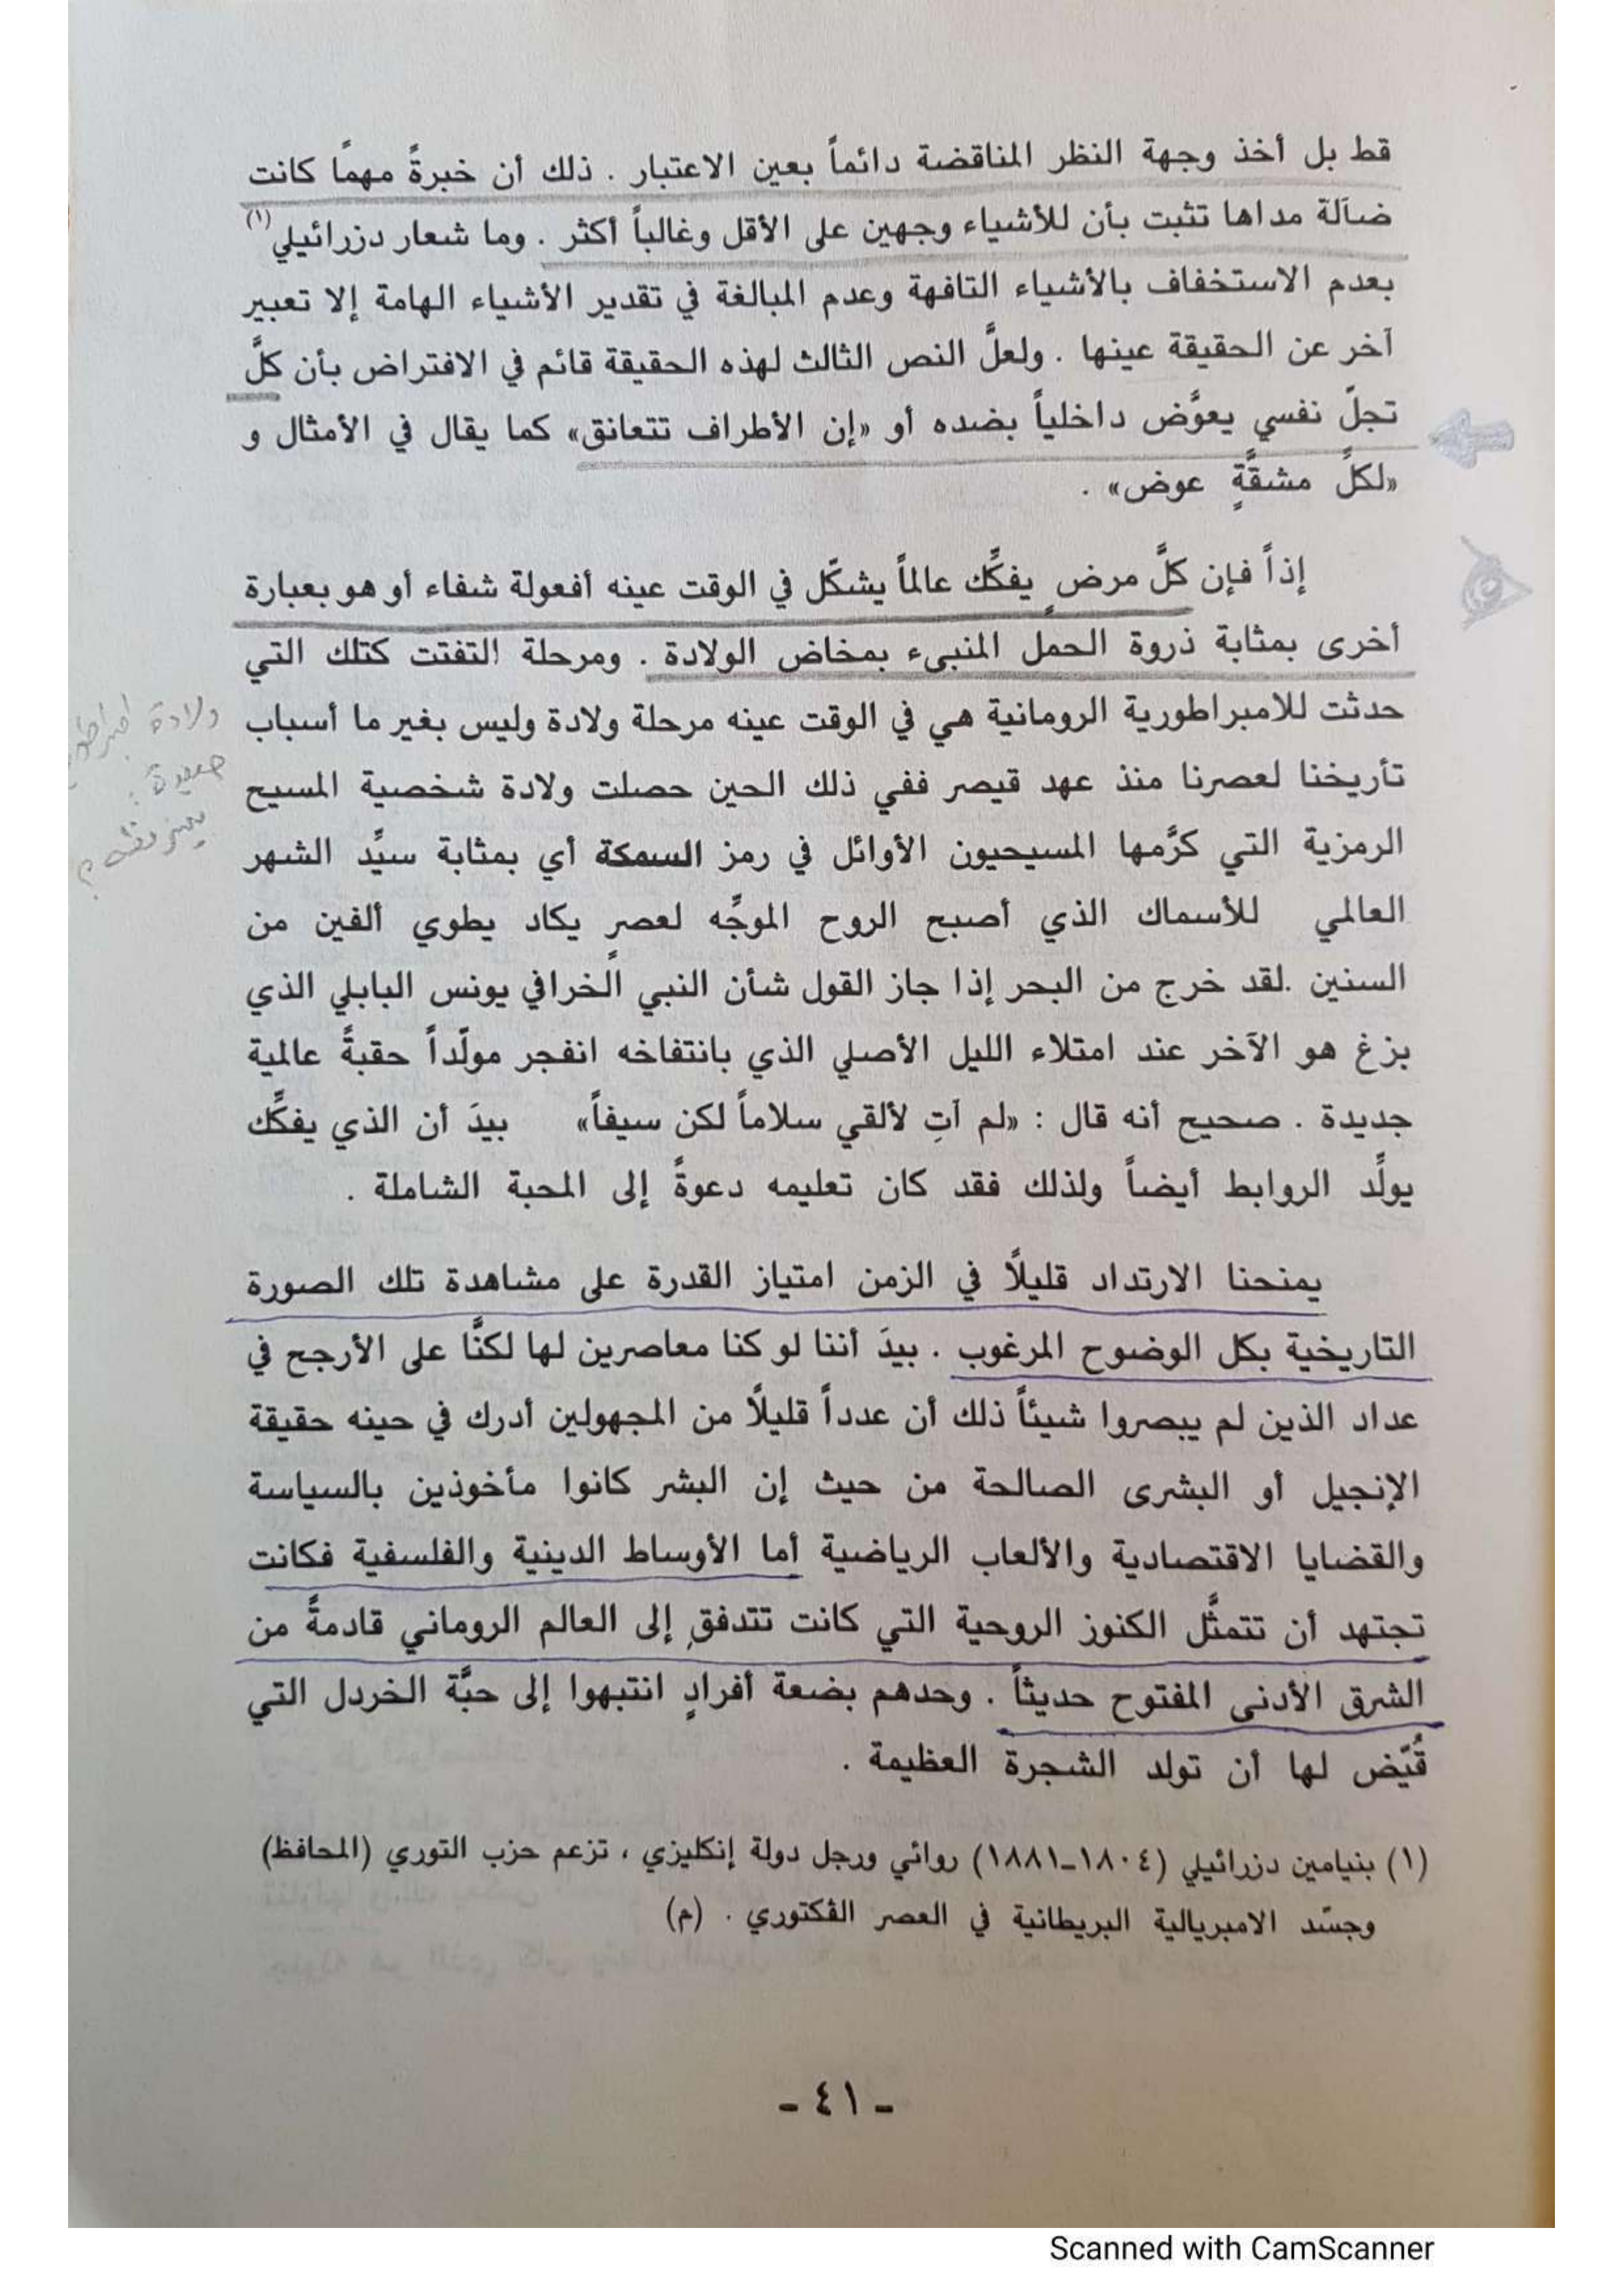 قط بل أخذ وجهة النظر المناقضة دائماً بعين الاعتبار . ذلك أن خبرةً مهمًا كانت
ضآلة مداها تثبت بأن للأشياء وجهين على الأقل وغالباً أكثر . وما شعار دزرائيلي(١)
بعدم الاستخفاف بالأشياء التافهة وعدم المبالغة في تقدير الأشياء الهامة إلا تعبير
آخر عن الحقيقة عينها . ولعلَّ النص الثالث لهذه الحقيقة قائم في الافتراض بأن كلَّ
تجلّ نفسي يعوَّض داخلياً بضده أو «إن الأطراف تتعانق» كما يقال في الأمثال و
«لكلِّ مشقَّةٍ عوض» .
إذاً فإن كلَّ مرضٍ يفكِّك عالماً يشكّل في الوقت عينه أفعولة شفاء أو هو بعبارة
أخرى بمثابة ذروة الحمل المنبىء بمخاض الولادة . ومرحلة التفتت كتلك التي
حدثت للامبراطورية الرومانية هي في الوقت عينه مرحلة ولادة وليس بغير ما أسباب
تأريخنا لعصرنا منذ عهد قيصر ففي ذلك الحين حصلت ولادة شخصية المسيح
الرمزية التي كرَّمها المسيحيون الأوائل في رمز السمكة أي بمثابة سيِّد الشهر
العالمي للأسماك الذي أصبح الروح الموجِّه لعصرٍ يكاد يطوي ألفين من
السنين .لقد خرج من البحر إذا جاز القول شأن النبي الخرافي يونس البابلي الذي
بزغ هو الآخر عند امتلاء الليل الأصلي الذي بانتفاخه انفجر مولّداً حقبةً عالمية
جديدة . صحيح أنه قال : «لم آتِ لألقي سلاماً لكن سيفاً» بيدَ أن الذي يفكِّك
يولِّد الروابط أيضاً ولذلك فقد كان تعليمه دعوةً إلى المحبة الشاملة .
يمنحنا الارتداد قليلًا في الزمن امتياز القدرة على مشاهدة تلك الصورة
التاريخية بكل الوضوح المرغوب . بيدَ أننا لو كنا معاصرين لها لكنَّا على الأرجح في
عداد الذين لم يبصروا شيئاً ذلك أن عدداً قليلًا من المجهولين أدرك في حينه حقيقة
الإنجيل أو البشرى الصالحة من حيث إن البشر كانوا مأخوذين بالسياسة
والقضايا الاقتصادية والألعاب الرياضية أما الأوساط الدينية والفلسفية فكانت
تجتهد أن تتمثَّل الكنوز الروحية التي كانت تتدفق إلى العالم الروماني قادمةً من
الشرق الأدنى المفتوح حديثاً . وحدهم بضعة أفرادٍ انتبهوا إلى حبَّة الخردل التي
قُيّض لها أن تولد الشجرة العظيمة .
(١) بنيامين دزرائيلي (١٨٠٤-١٨٨١) روائي ورجل دولة إنكليزي ، تزعم حزب التوري (المحافظ)
وجسّد الامبريالية البريطانية في العصر الڤكتوري . (م)
- ٤١ -
ولادة
Scanned with CamScanner